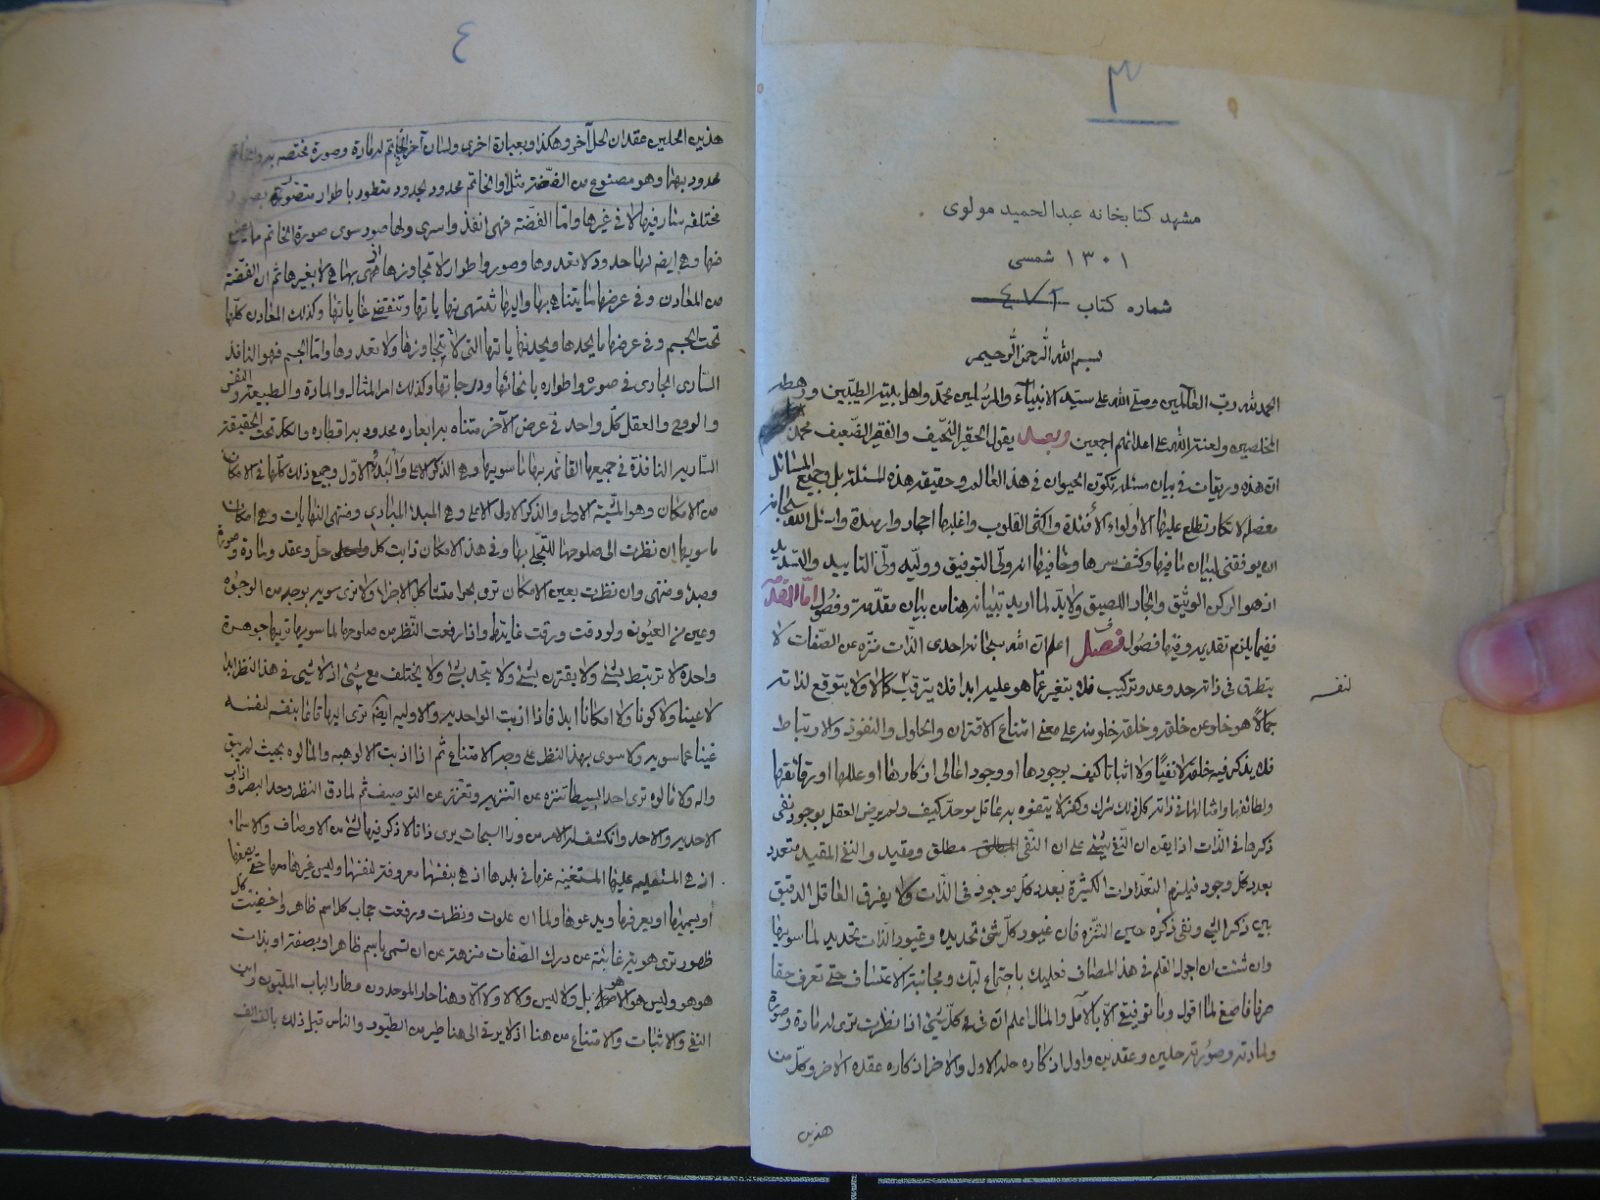 ٣
مشهد كتابخانه عبدالحميد مولوى
١٣٠١ شمسى
شماره كتاب ٤٧٢
بسم الله الرحمن الرحيم
الحمد لله رب العالمين وصلى الله على سيد الانبياء والمرسلين محمد واهل بيته الطيبين ورهطه
المخلصين ولعنة الله على اعدائهم اجمعين وبعد يقول الحقير النحيف والفقير الضعيف محمد
ان هذه وريقات فى بيان مسئلة تكون الحيوان فى هذا العالم وحقيقة هذه المسئلة بل وجميع المسائل
معضلة لا تكاد تطلع عليها الا اولوا الأفئدة واكثر القلوب واغلبها احجار وارصدة واسئل الله سبحانه
ان يوفقنى لبيان ما فيها وكشف سرها وخافيها انه ولى التوفيق ووليه ولى التاييد والتسديد
اذ هو الركن الوثيق والجار اللصيق ولا بد لما اريد تبيانه هنا من بيان مقدمة وفصول اما المقدمة
ففيما يلزم تقديمه وفيها فصول فصل اعلم ان الله سبحانه احدى الذات منزه عن الصفات لا
يتطرق فى ذاته حد وعد وتركيب فلا يتغير عما هو عليه ابدا فلا يترقب كمالا ولا يتوقع لذاته
لنفسه
جمالا هو خلو من خلقه وخلقه خلو منه على معنى امتناع الاقتران والحلول والنفوذ والارتباط
فلا يذكر فيه خلقه لا نفيا ولا اثباتا كيف بوجودها او وجود اعالى اذكارها او عللها او رقائقها
ولطائفها وامثالها فى ذاته كل ذلك شرك وكفر لا يتفوه به عاقل موحد كيف ولم يرض العقل بوجود نفى
ذكرها فى الذات اذ ايقن ان النفى شئ على ان النفى مطلق ومقيد والنفى المقيد متعدد
بعدد كل وجود فيلزم التعددات الكثيرة بعدد كل موجود فى الذات ولا يفرق العاقل الدقيق
بين ذكر الشئ ونفى ذكره حين التنزه فان غيور كل شئ تحديده وغيور الذات تحديد لما سويها
وان شئت ان اجول القلم فى هذا المضاف فعليك باجتماع لبك ومجانبة الاعتساف حتى تعرف حقا
صرفا فاصغ لما اقول وما توفيقى الا بالله اعلم ان فى كل شئ اذا نظرت ترى له مادة وصورة
ولمادته وصورته حلين وعقدين واول اذكاره حله الاول والاخر اذكاره عقده الاخر وكل من
هذين
٤
هذين المحلين عقدان لحل آخر وهكذا وبعبارة اخرى ولسان آخر الخاتم له مادة وصورة مختصة به
محدود بهما وهو مصنوع من الفضة مثلا والخاتم محدود بحدود متطور باطوار متصور بصور
مختلفة سار فيها لا فى غيرها واما الفضة فهى انفذ واسرى ولها صور سوى صورة الخاتم مما يصنع
منها وهى ايضا لها حدود لا تعدوها وصور واطوار لا تجاوزها فهى بها هى لا بغيرها ثم ان الفضة
من المعادن وفى عرضها ما يتناهى بها واليها تنتهى نهاياتها وتنقضى غاياتها وكذلك المعادن كلها
تحت الجسم وفى عرضها ما يحدها ويحد نهاياتها التى لا تتجاوزها ولا تعدوها واما الجسم فهو النافذ
السارى الجارى فى صوره واطواره بانحائها ودرجاتها وكذلك امر المثال والمادة والطبيعة والنفس
والروح والعقل كل واحد فى عرض الآخر متناه به ابعاره محدود به اقطاره والكل تحت الحقيقة
السارية النافذة فى جميعها القائم بها ما سويها وهى الذكر الاعلى والبدء الاول وجميع ذلك كلها فى الامكان
من الامكان وهو المشية الاولى والذكر الاول الاعلى وهى المبدء المبادى ومنتهى النهايات وهى امكان
ما سويها ان نظرت الى صلوحها للتجلى بها وفى هذا الامكان ثابت كل حل وعقد ومادة وصورة
ومبدء ومنتهى وان نظرت بعين الامكان ترى بحرا متشاكل الاجزاء ولا ترى سويه بوجه من الوجوه
وعين من العيون ولو دقت ورقت فما يتطرق واذا رفعت النظر من صلوحها لما سويها تريها جوهرة
واحدة لا ترتبط بشئ ولا يقترن بشئ ولا يتحد بشئ ولا يختلف مع شئ اذ لا شئ فى هذا النظر ابدا
لا عينا ولا كونا ولا امكانا ابدا فاذا اذبت الواحدية والاولية ايضا ترى اليها قائما بنفسه لنفسه
غنيا عما سويه ولا سوى بهذا النظر على وجه الامتناع ثم اذا اذبت الالوهية والمالوه بحيث لم يبق
واله ولا مالوه ترى احدا بسيطا تنزه عن التنزيه وتعزز عن التوصيف ثم لما دق النظر وحد البصر واذاب
الاحدية والاحد وانكشف له الامر من وراء السبحات يرى ذاتا لا ذكر فيها لشئ من الاوصاف والاسماء
اذ هى المتعلية عليها المستغنية عنها فى بلدها اذ هى بنفسها معروفة لنفسها وليس غيرها معها حتى يصفها
او يسميها او يعرفها ويدعوها ولما ان علوت ونظرت ورفعت حجاب كل اسم ظاهر واخفيت كل
ظهور ترى هوية غائبة عن درك الصفات منزهة عن ان تسمى باسم ظاهر او بصفة او بذات
هو هو وليس هو الا هو بل ولا ليس ولا لا ولا الا وهنا حار الموحدون وطار الباب الملبون واين
النفى والاثبات والامتناع من هنا اذ لا يرقى الى هنا طير من الطيور والناس قبل ذلك بالف الف